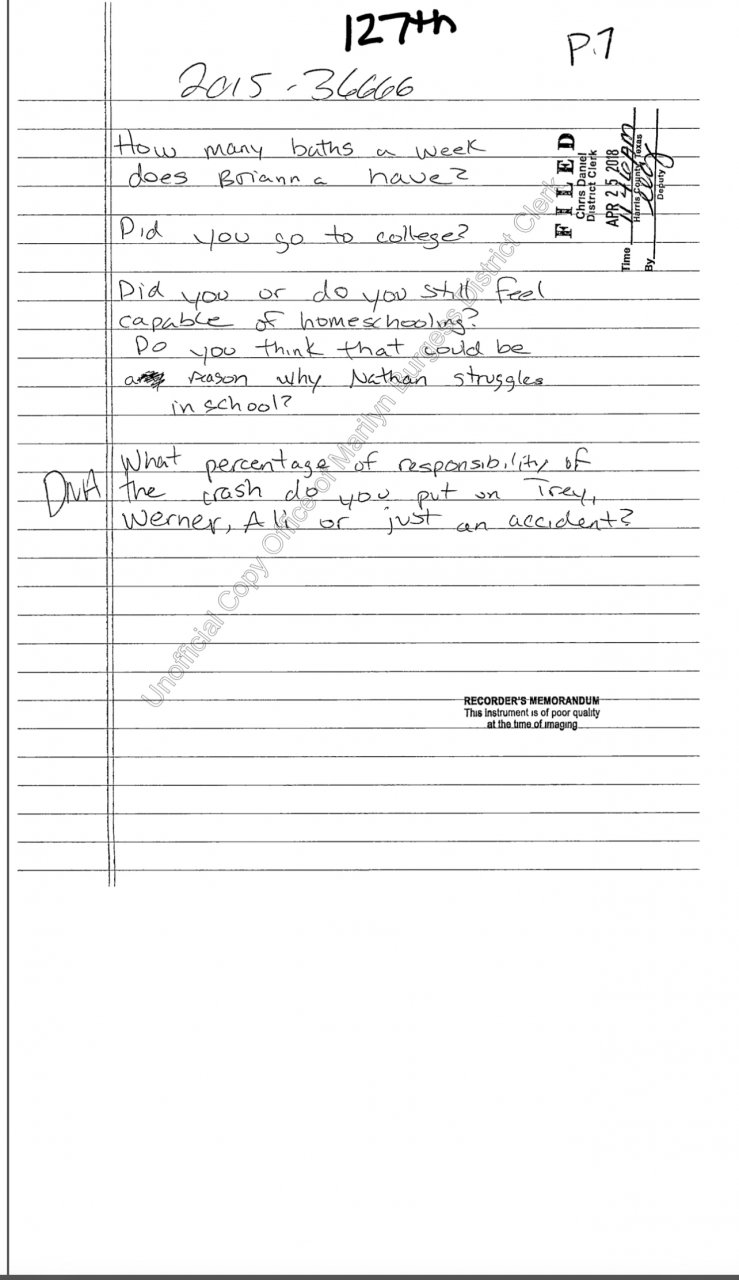 127th
P.7
2015-36666
How many baths a week
does Brianna have?
Did you go to college?
Did you or do you still feel
capable of homeschooling?
Do you think that could be
a reason why Nathan struggles
in school?
DNA
What percentage of responsibility of
the crash do you put on Trey,
Werner, Ali or just an accident?
FILED
Chris Daniel
District Clerk
APR 25 2018
Time
Harris County, Texas
By
Deputy
Unofficial Copy Office of Marilyn Burgess District Clerk
RECORDER'S MEMORANDUM
This instrument is of poor quality
at the time of imaging